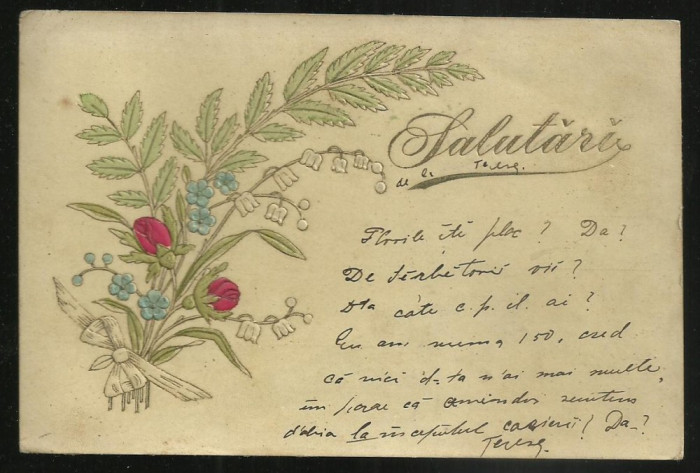 Salutări
de la Tereza.
Florile îți plac? Da?
De sărbători vii?
D-ta câte c.p. il. ai?
Eu am numa 150, cred
că nici d-ta n'ai mai multe,
îmi pare că amândoi suntem
d'abia la începutul carierii! Da-?
Tereza